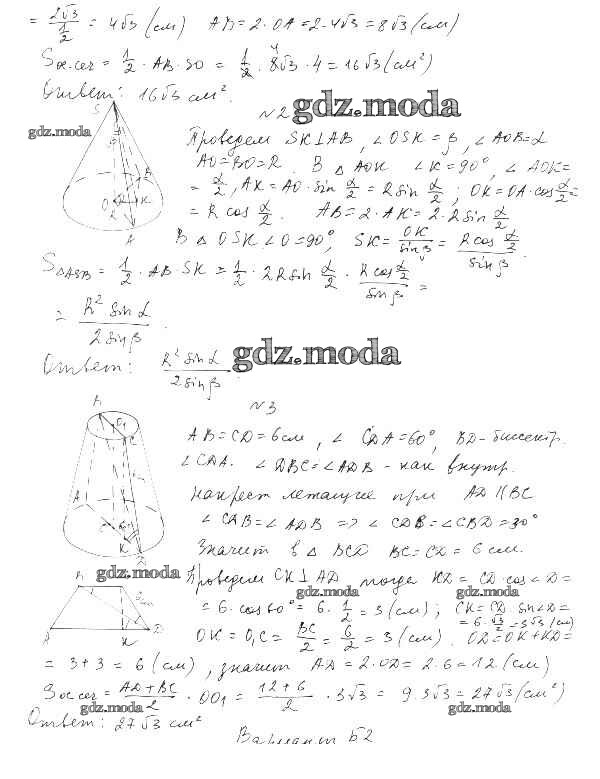 = 2√3 / 1/2 = 4√3 (см) AB = 2·OA = 2·4√3 = 8√3 (см)
Sос.сег = 1/2 · AB · SO = 1/2 · 8√3 · 4 = 16√3 (см²)
Ответ: 16√3 см².
№2 gdz.moda
gdz.moda
Проведем SK⊥AB, ∠OSK = β, ∠AOB = α
AO = BO = R. В △AOK ∠K = 90°, ∠AOK =
= α/2, AK = AO · sin α/2 = R sin α/2; OK = OA · cos α/2 =
= R cos α/2. AB = 2·AK = 2·R sin α/2
В △OSK ∠O = 90°, SK = OK / sin β = R cos α/2 / sin β.
S△ASB = 1/2 · AB · SK = 1/2 · 2R sin α/2 · R cos α/2 / sin β =
= R² sin α / 2 sin β.
Ответ: R² sin α / 2 sin β. gdz.moda
№3
AB = CD = 6 см, ∠CDA = 60°, BD - биссектр.
∠CDA. ∠DBC = ∠ADB - как внутр.
накрест лежащие при AD || BC
∠CDB = ∠ADB => ∠CDB = ∠CBD = 30°
Значит в △BCD BC = CD = 6 см.
gdz.moda Проведем CK⊥AD, тогда KD = CD · cos∠D =
gdz.moda gdz.moda
= 6·cos 60° = 6 · 1/2 = 3 (см); CK = CD · sin∠D =
= 6 · √3/2 = 3√3 (см)
OK = O₁C = BC/2 = 6/2 = 3 (см). OD = OK + KD =
= 3 + 3 = 6 (см), значит AD = 2·OD = 2·6 = 12 (см)
Sос.сег = AD + BC / 2 · OO₁ = 12 + 6 / 2 · 3√3 = 9·3√3 = 27√3 (см²)
gdz.moda gdz.moda
Ответ: 27√3 см²
Вариант Б2